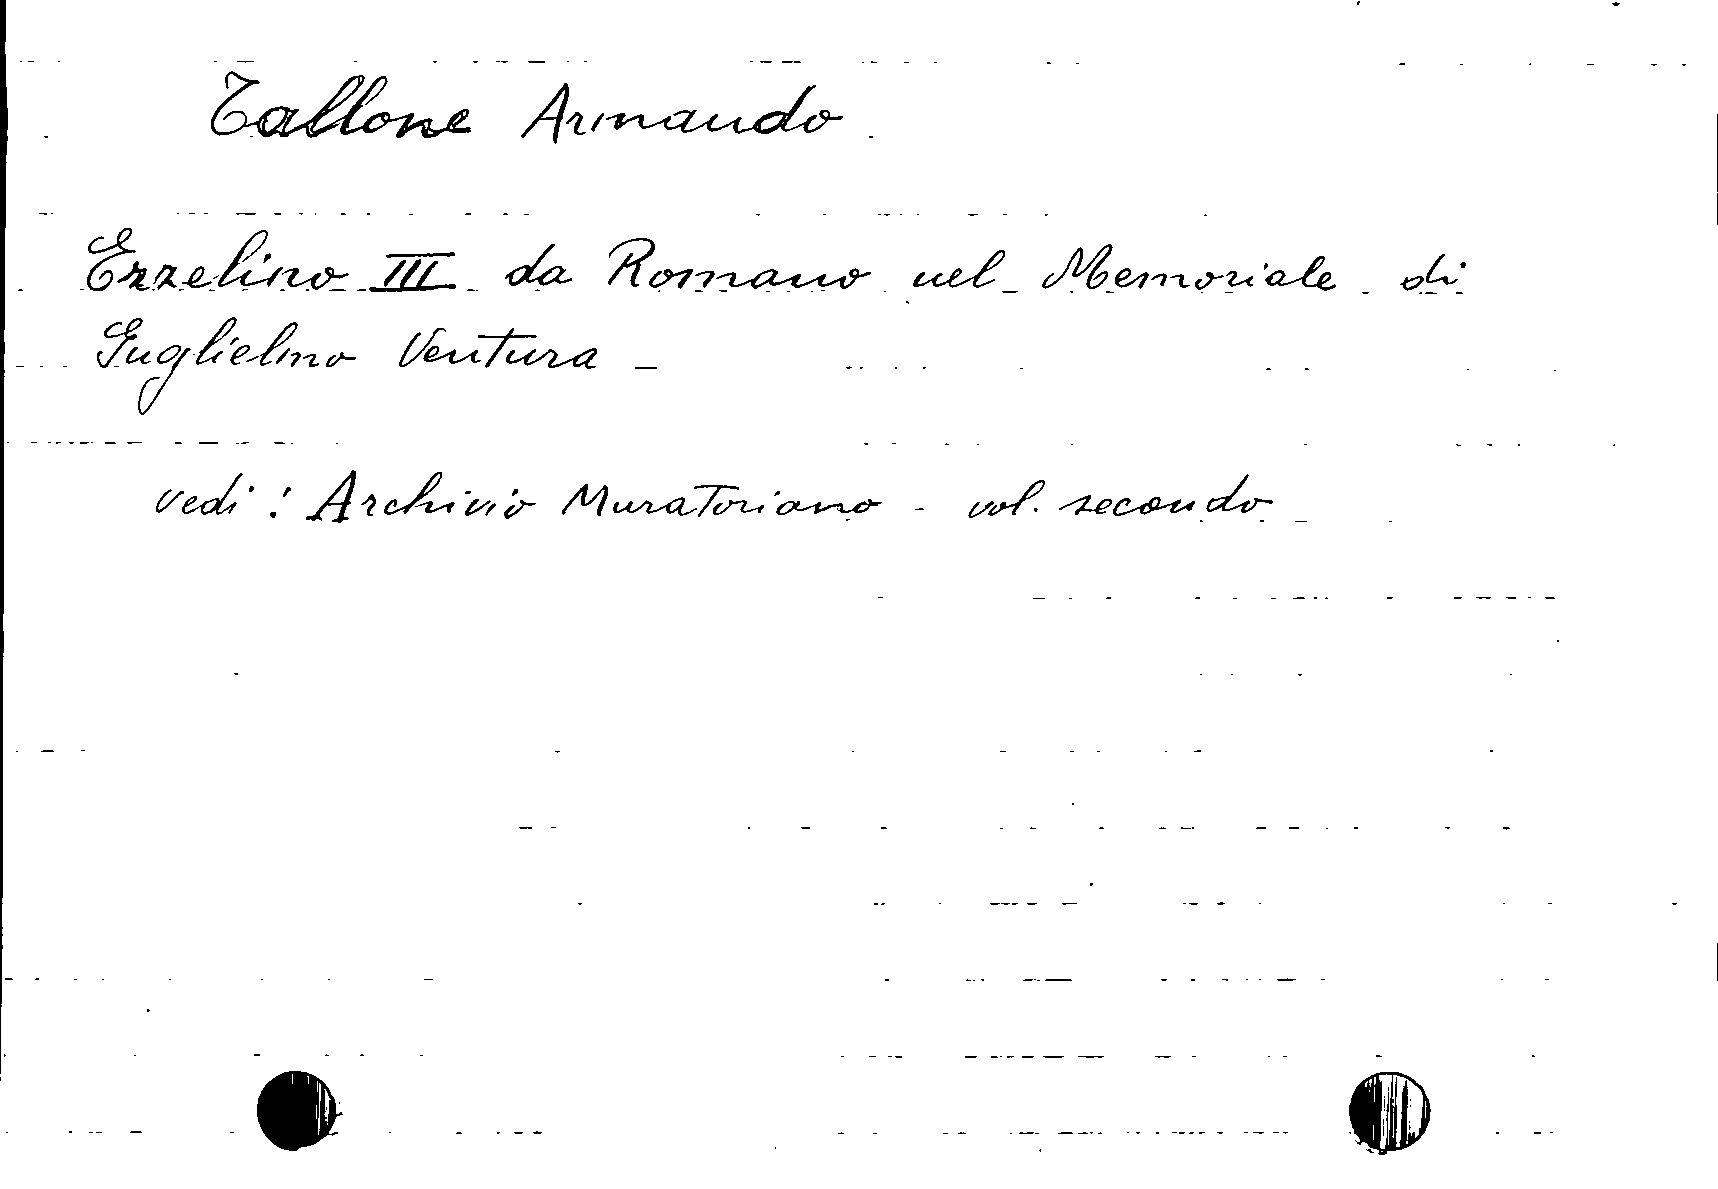 Tallone Armando
Ezzelino III da Romano nel Memoriale di
Guglielmo Ventura -
vedi: Archivio Muratoriano - vol. secondo